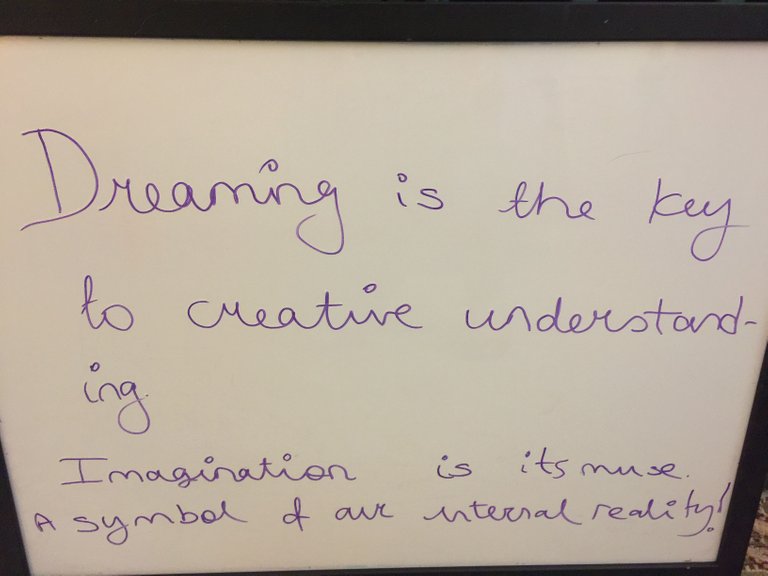 Dreaming is the key
to creative understand-
ing.
Imagination is its muse.
A symbol of our internal reality!